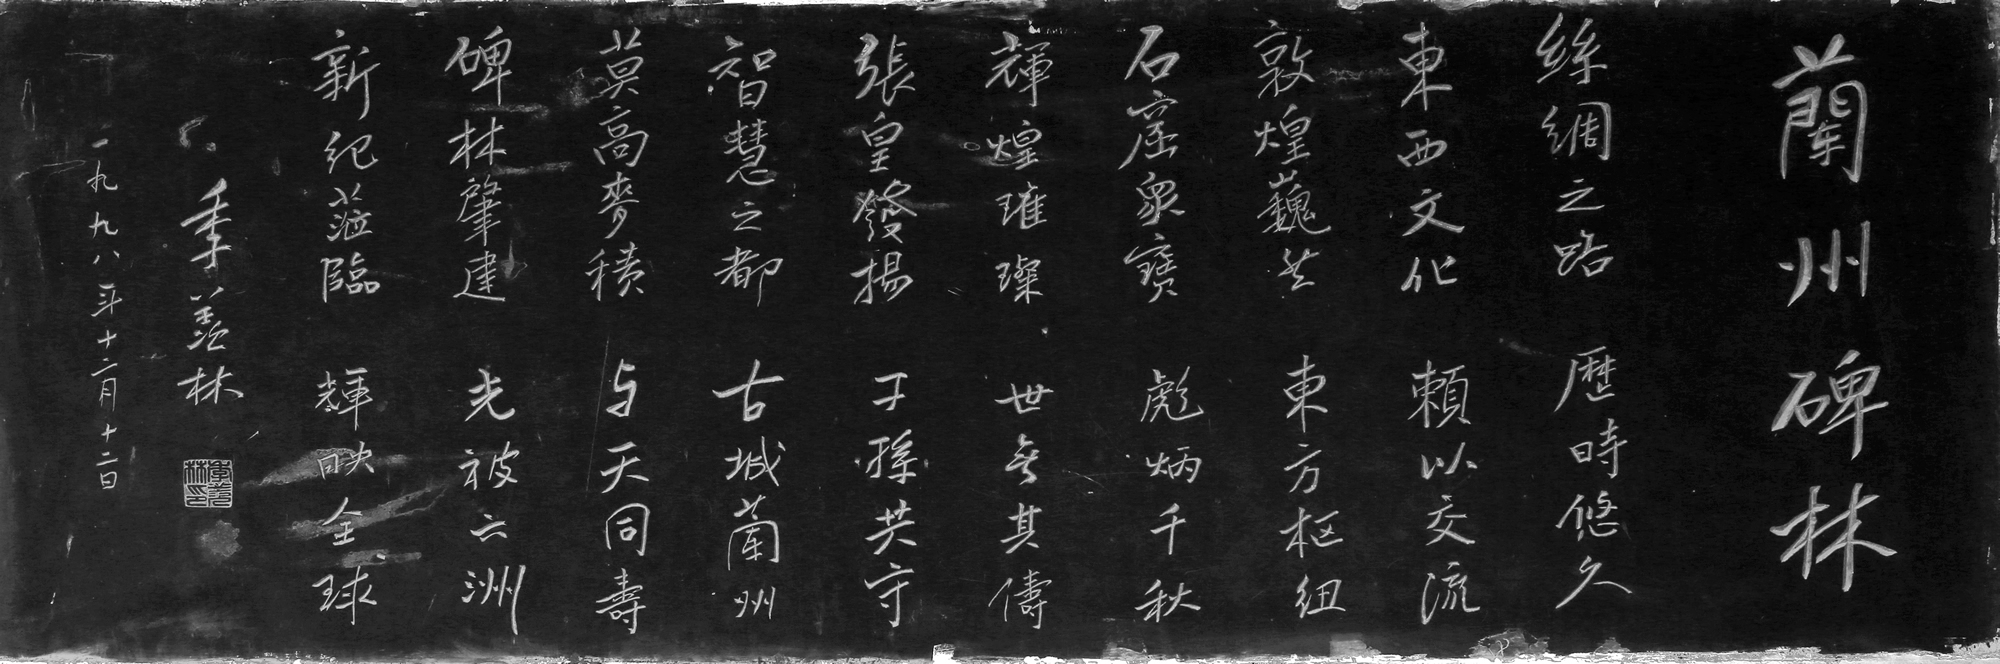 蘭州碑林
絲綢之路 歷時悠久
東西文化 賴以交流
敦煌巍然 東方枢紐
石窟眾寶 彪炳千秋
輝煌璀璨 世無其儔
張皇發揚 子孫共守
智慧之都 古城蘭州
莫高麥積 与天同壽
碑林肇建 光被六洲
新紀蒞臨 輝映全球
季羨林
季羨林印
一九九八年十二月十二日